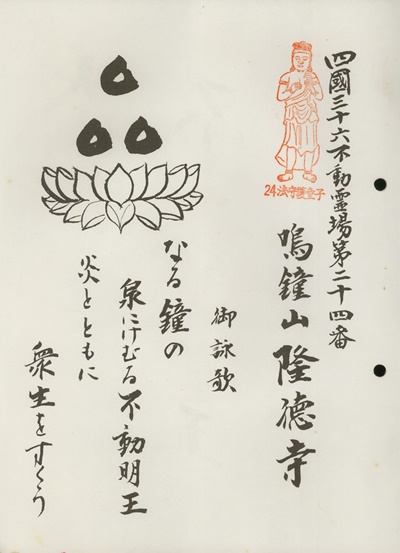 四國三十六不動霊場第二十四番
24法守護童子
鳴鐘山隆徳寺
御詠歌
なる鐘の
泉にけむる不動明王
炎とともに
衆生をすくう